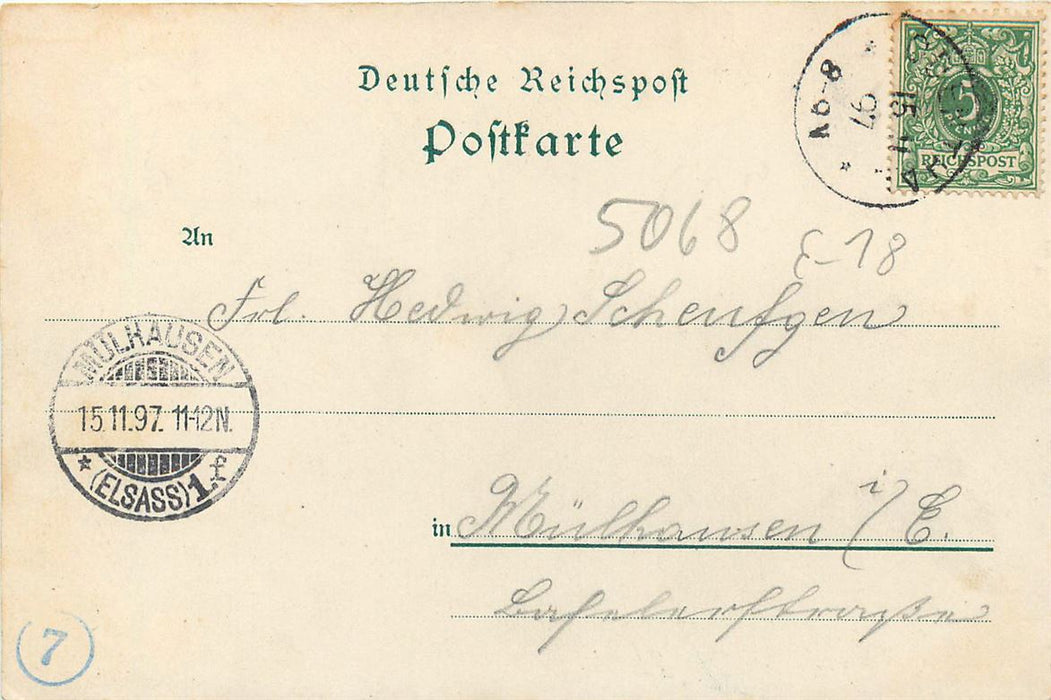 Deutsche Reichspost
Postkarte
15 11
97
8-9N
5
REICHSPOST
5068
E-18
An
Frl. Hedwig Scheufgen
MÜLHAUSEN
15.11.97. 11-12N.
(ELSASS) 1. f
in Mülhausen i/E.
Baselerstraße
7